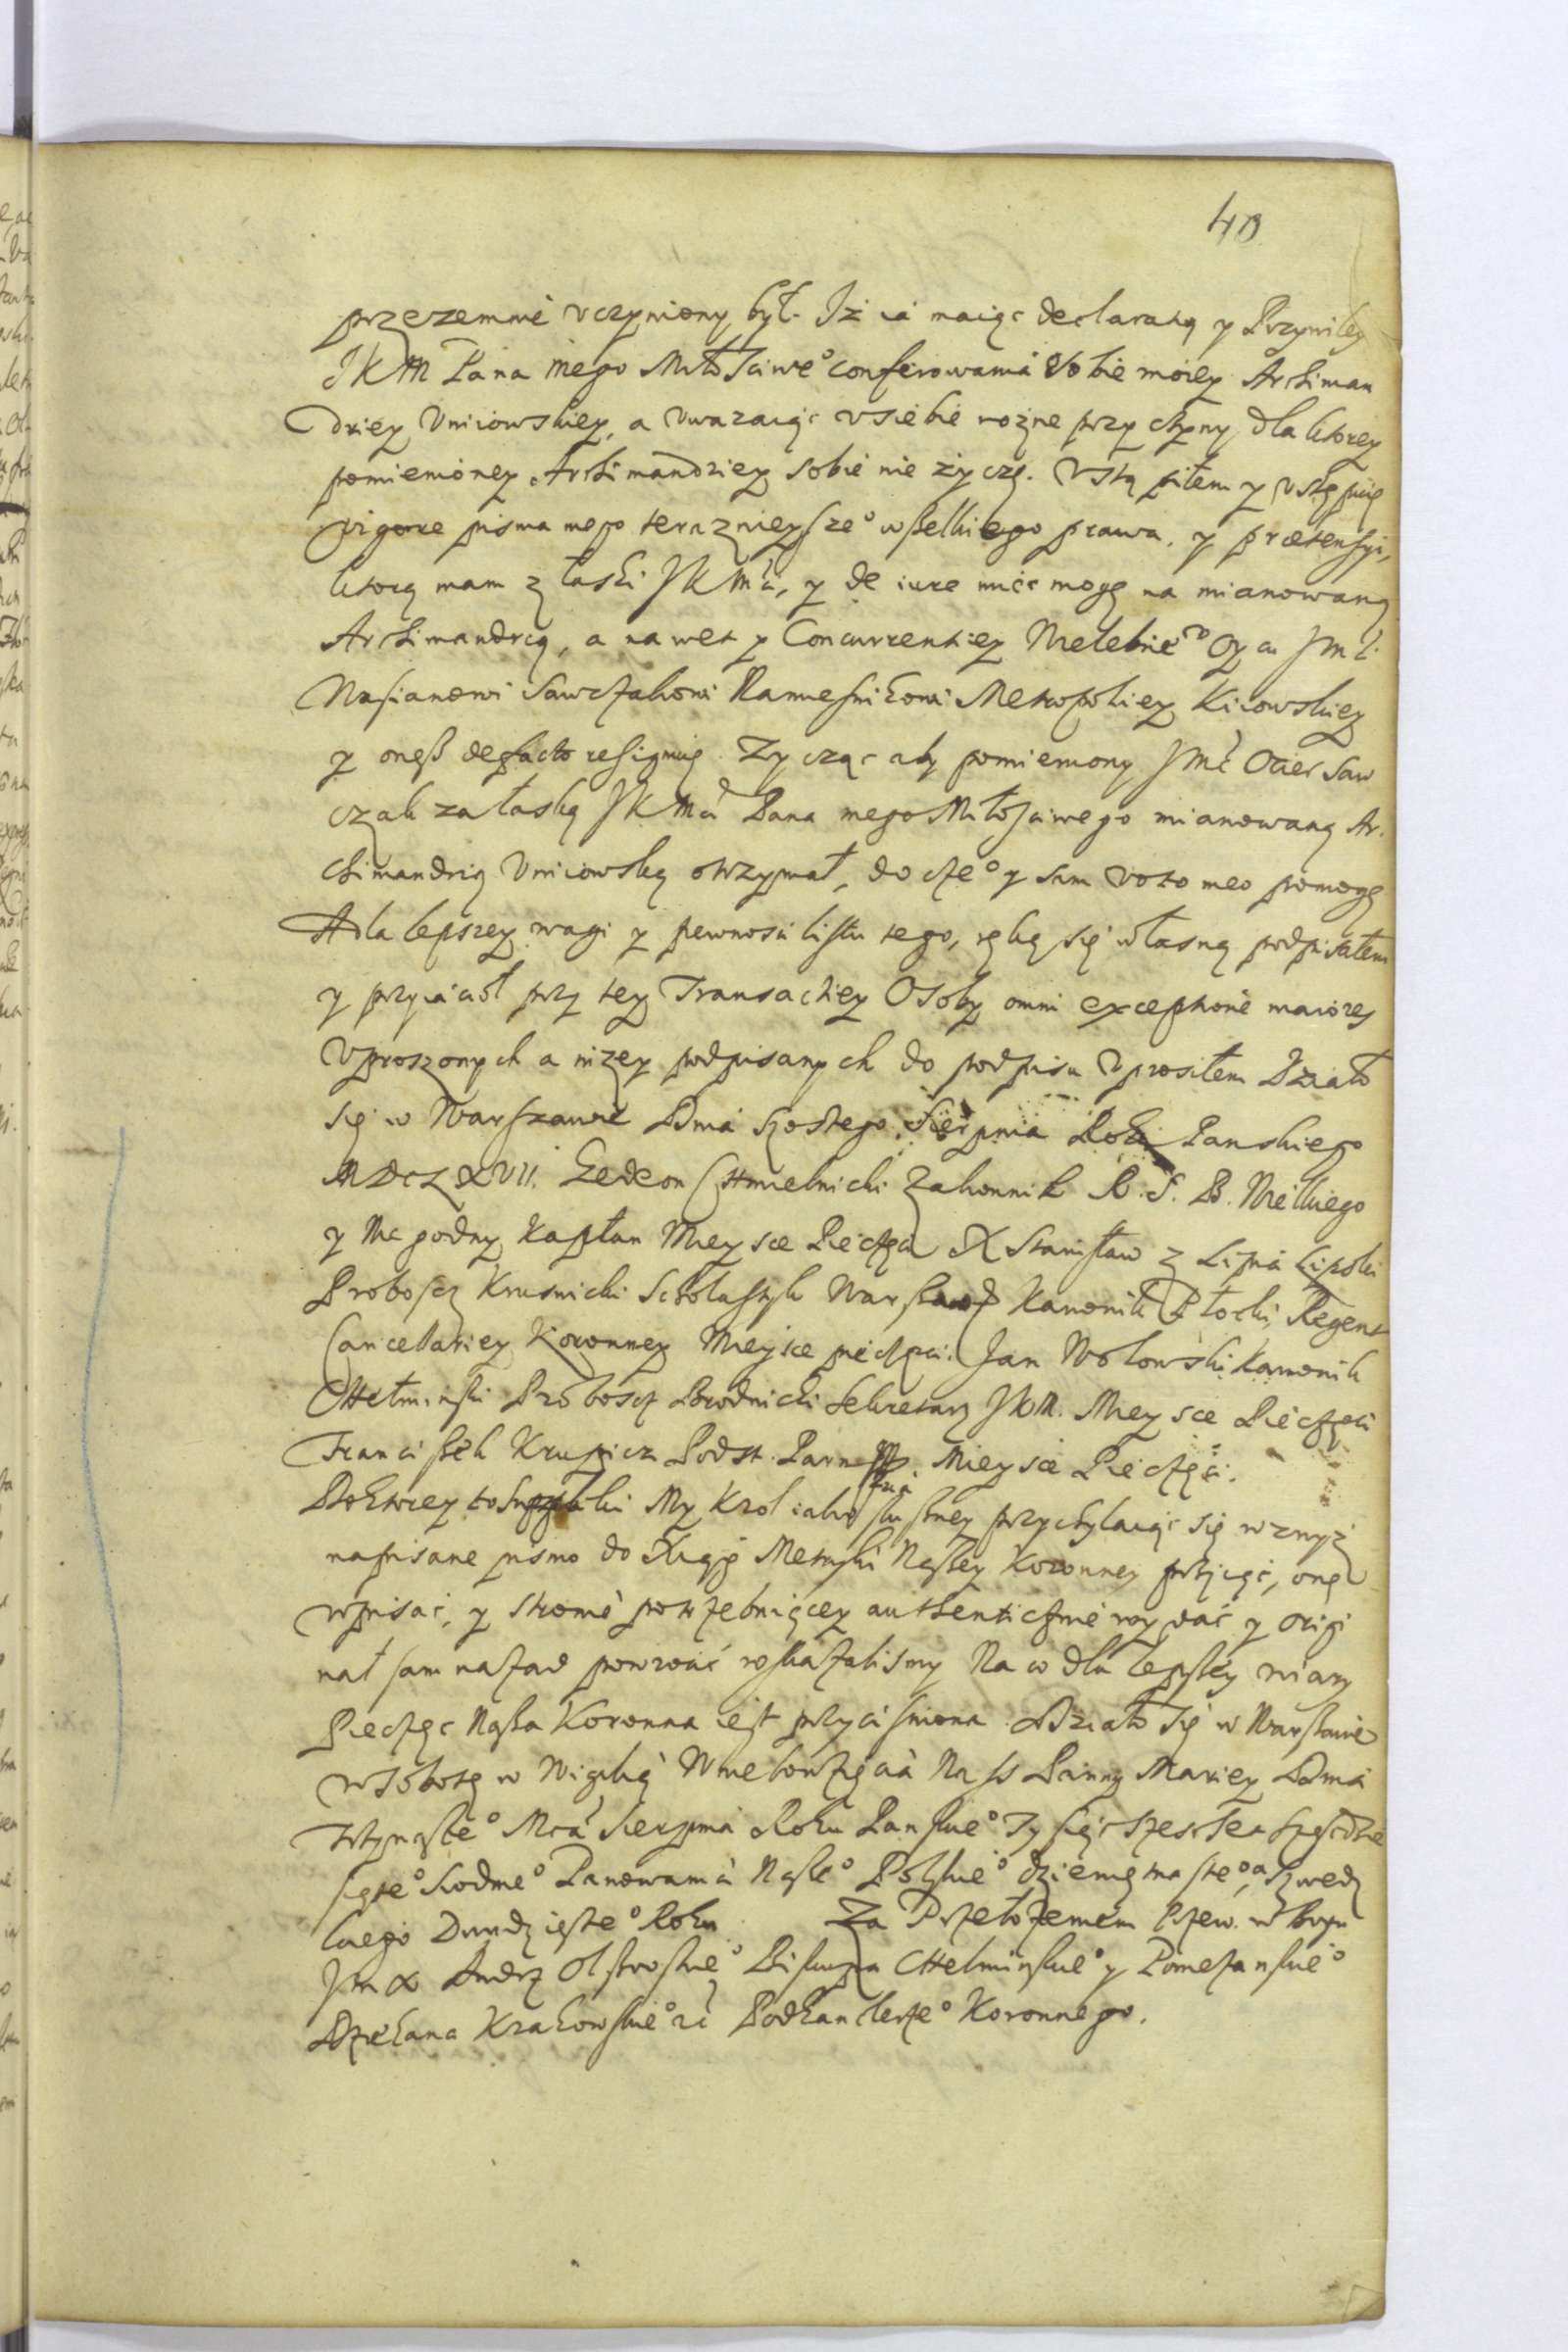 40
przezemnie uczyniony był. Iż ia maiąc declaratią y Przywiley
JKM Pana mego Miłościwe° conferowania osobie moiey Archiman
driey Uniowskiey, a uwazaiąc u siebie rożne przyczyny dla ktorey
pomienioney Archimandriey sobie nie życzę. Ustąpiłem y ustępuię
vigore pisma mego teraznieysze° wszelkiego prawa, y praetensyi,
ktorą mam z łaski JKMci, y de iure mieć mogę na mianowaną
Archimandrią, a nawet y Concurrentiey Wielebne° Oyca JMci
Sawczakowi Namiesnikowi Metropoliey Kiiowskiey
y onęß defacto resignuię. Zycząc aby pomieniony JMć Ociec Saw
czak za łaską JKMci Pana mego Miłościwego mianowaną Ar
chimandrią Uniowską otrzymał, do cze° y sam voto meo pomogę
A dla lepszey wagi y pewnosci listu tego, ręką się własną podpisałem
y przyiaciół przy tey Transactiey Osoby omni exceptione maiores
Uproszonych a niżey podpisanych do podpisu uprosiłem Działo
się w Warszawie Dnia szostego Sierpnia Roku Panskiego
MDCLXVII. Gedeon Chmielnicki Zakonnik R. S. B. Wielkiego
y Niegodny Kapłan Mieysce Pieczęci X Stanisław z Lipia Lipski
Proboscz Krusnicki Scholastyk Warszaws Kanonik Płocki, Regent
Cancellariey Koronney Mieysce pieczęci. Jan Wołowski Kanonik
Chełminski Proboscz Brodnicki Sekretarz JKM. Mieysce Pieczęci
Franciszek Krupicz Podst. Parn. Mieysce Pieczęci.
Do ktorey to Suppliki My Krol iako słuszney przychylaiąc się wzwyż
napisane pismo do Xiąg Metryki Naszey Koronney przyiąć, onę
wpisać, y stronie potrzebuiącey authenticznie wydać y origi
nał sam nazad powrocić roskazalismy Na co dla lepszey wiary
Pieczęć Nasza Koronna iest przycisniona. Działo się w Warszawie
w Sobotę w Wigilię Wniebowzięcia Na sw Panny Mariey Dnia
Trzynaste° Mca Sierpnia Roku Panskie° Tysiąc szescset szescdzie
siąte° siodme° Panowania Nasze° Polskie° dziewiętnaste°, a Szwedz
kiego Dwudzieste° Roku Za Przełożeniem Przew. w Bogu
JmX Andrz Olszowskie° Biskupa Chełminskie° y Pomezanskie°
Dziekana Krakowskie° Podkanclerze° Koronnego.